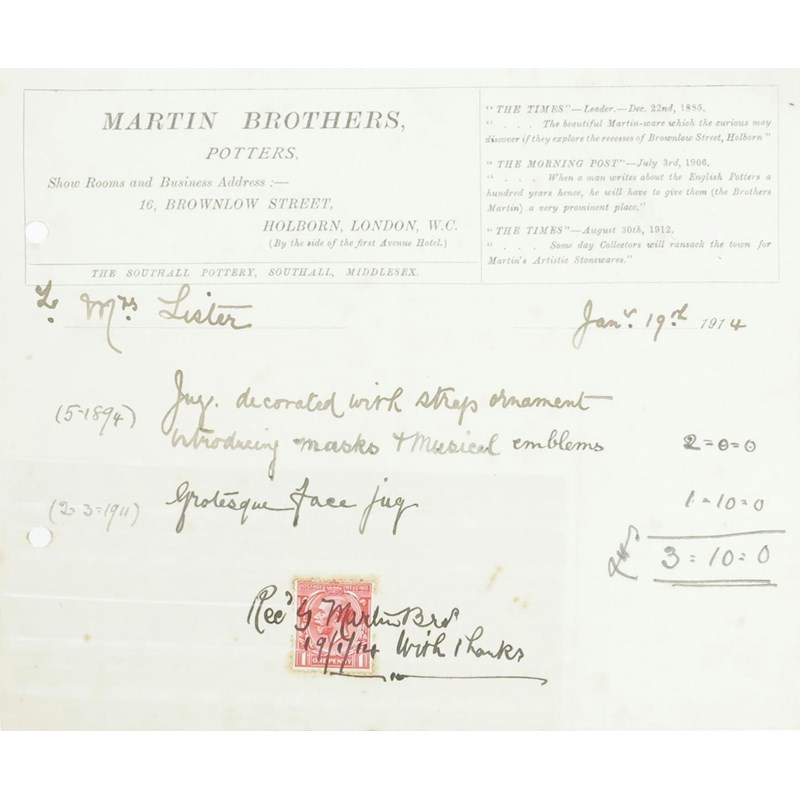 MARTIN BROTHERS,
POTTERS,
Show Rooms and Business Address :—
16, BROWNLOW STREET,
HOLBORN, LONDON, W.C.
(By the side of the first Avenue Hotel.)
THE SOUTHALL POTTERY, SOUTHALL, MIDDLESEX.
"THE TIMES"—Leader.—Dec. 22nd, 1885.
". . . . The beautiful Martin-ware which the curious may
discover if they explore the recesses of Brownlow Street, Holborn"
"THE MORNING POST"—July 3rd, 1906.
". . . . When a man writes about the English Potters a
hundred years hence, he will have to give them (the Brothers
Martin) a very prominent place."
"THE TIMES"—August 30th, 1912.
". . . . Some day Collectors will ransack the town for
Martin's Artistic Stonewares."
To Mrs Lister
Jany. 19th 1914
(5-1894) Jug. decorated with strap ornament
introducing masks & Musical emblems 2=0=0
(2=3=1911) Grotesque Face jug 1=10=0
£ 3=10=0
Recd G Martin Bros
19/1/14 With Thanks
1 ONE PENNY 1